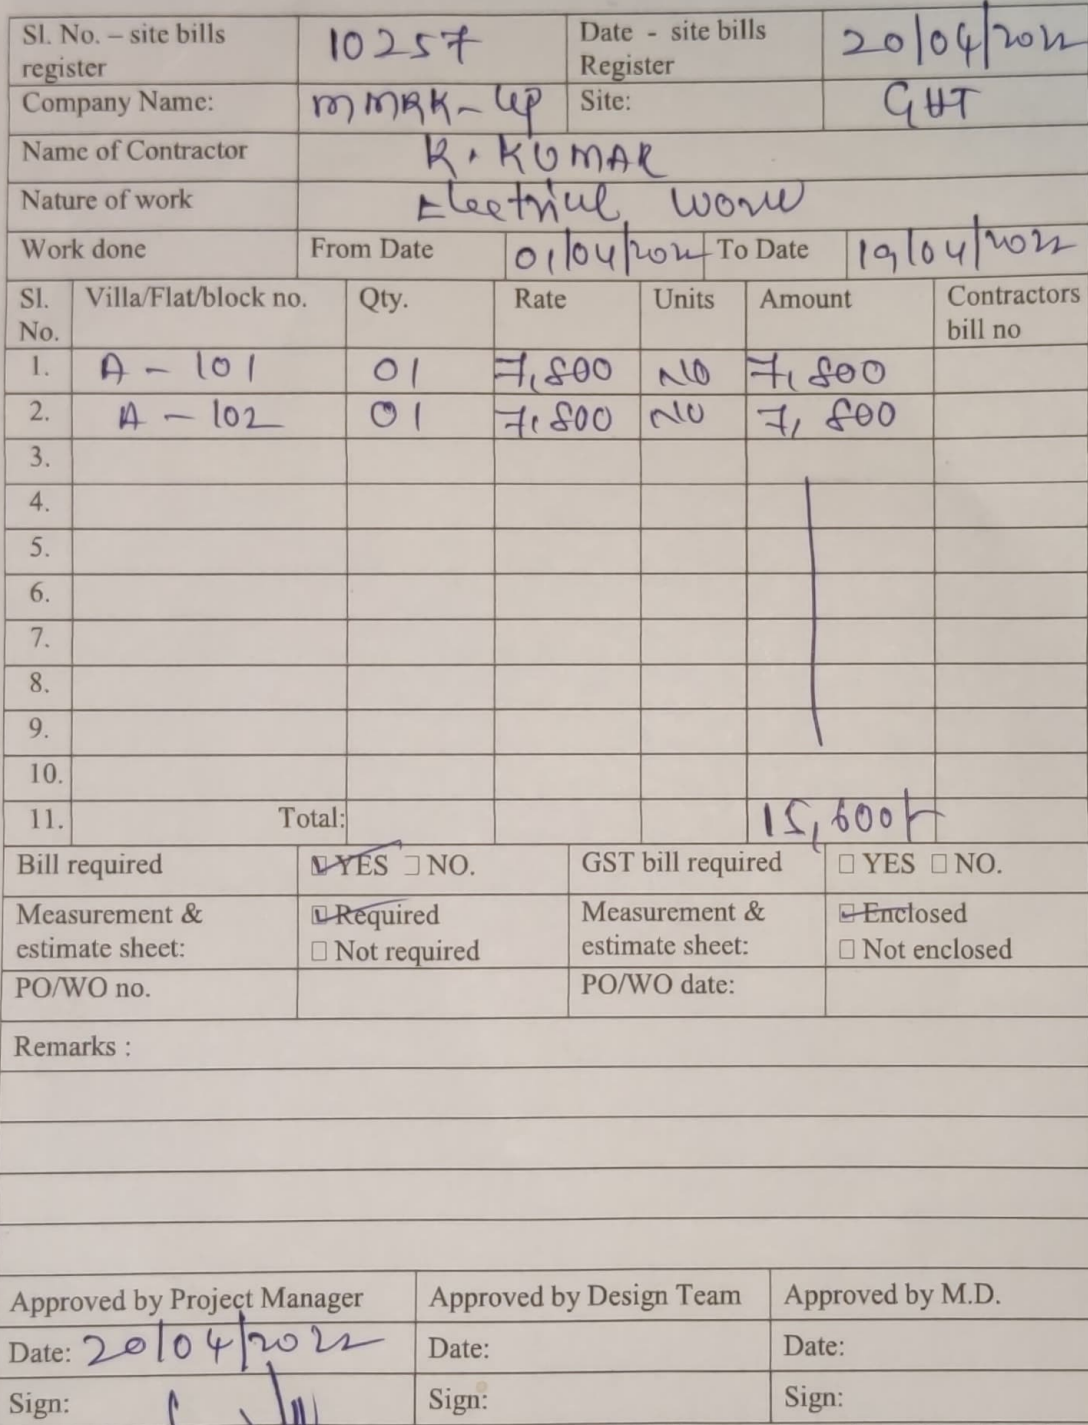 Sl. No. – site bills register 10257 Date - site bills Register 20/04/2022
Company Name: MMRK-UP Site: GHT
Name of Contractor R. KUMAR
Nature of work Electricul work
Work done From Date 01/04/2022 To Date 19/04/2022
Sl. No. Villa/Flat/block no. Qty. Rate Units Amount Contractors bill no
1. A - 101 01 7,800 NO 7,800
2. A - 102 01 7,800 NO 7,800
3.
4.
5.
6.
7.
8.
9.
10.
11. Total: 15,600/-
Bill required ☑ YES ☐ NO. GST bill required ☐ YES ☐ NO.
Measurement & estimate sheet: ☑ Required ☐ Not required Measurement & estimate sheet: ☑ Enclosed ☐ Not enclosed
PO/WO no. PO/WO date:
Remarks :
Approved by Project Manager Approved by Design Team Approved by M.D.
Date: 20/04/2022 Date: Date:
Sign: Sign: Sign: